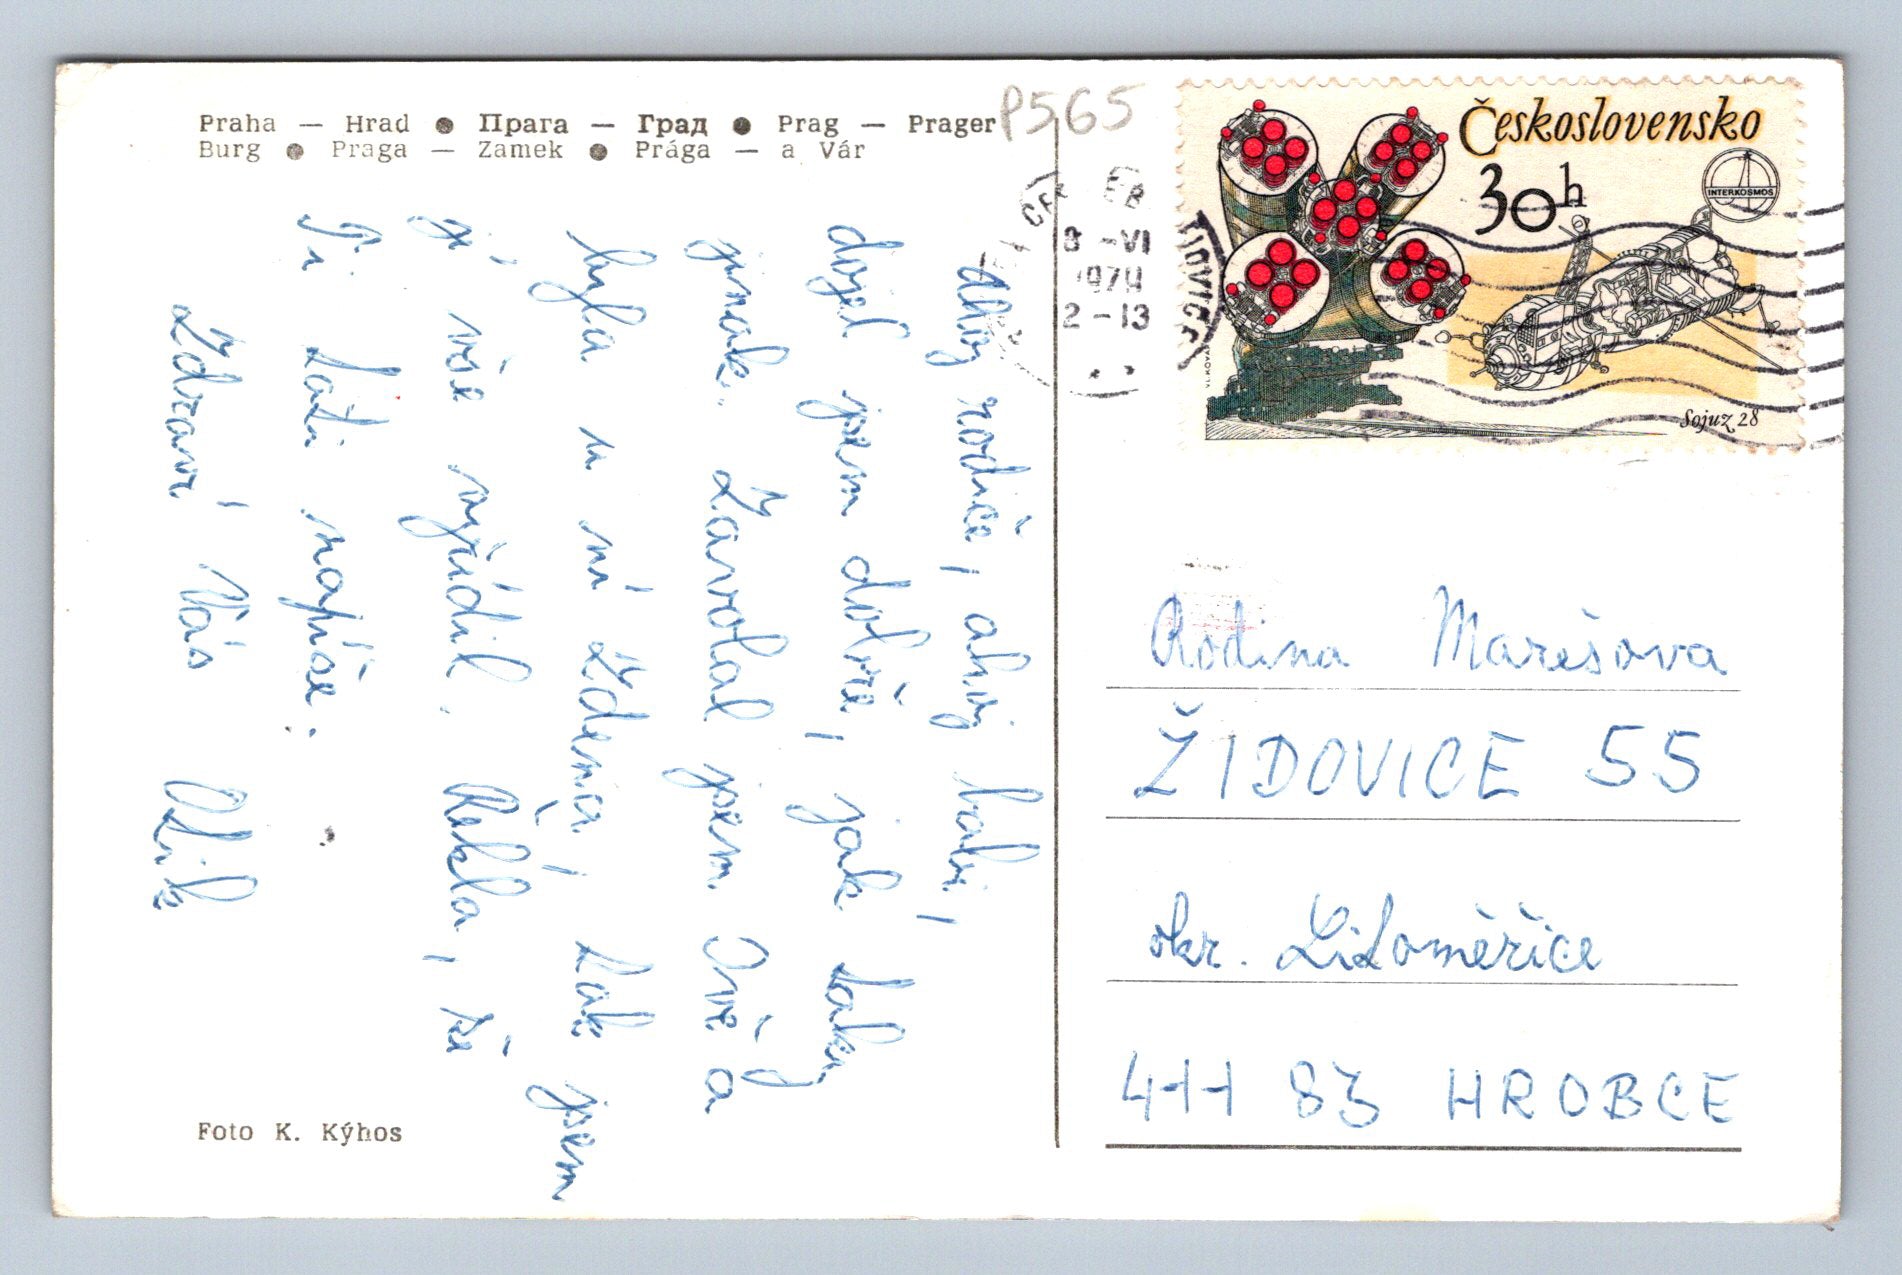 Praha — Hrad ● Прага — Град ● Prag — Prager
Burg ● Praga — Zamek ● Prága — a Vár
P565
Československo
30h
INTERKOSMOS
Sojuz 28
8 -VI
1979
2 - 13
Ahoj rodiče, ahoj babi,
dojel jsem dobře, jak taky
jinak. Zavolal jsem Ivě a
byla u ní Zdena, tak jsem
jí vše vyřídil. Řekla, že
Ti dati napíše.
Zdraví Vás Olik
Rodina Marešova
ŽIDOVICE 55
okr. Litoměřice
411 83 HROBCE
Foto K. Kýhos